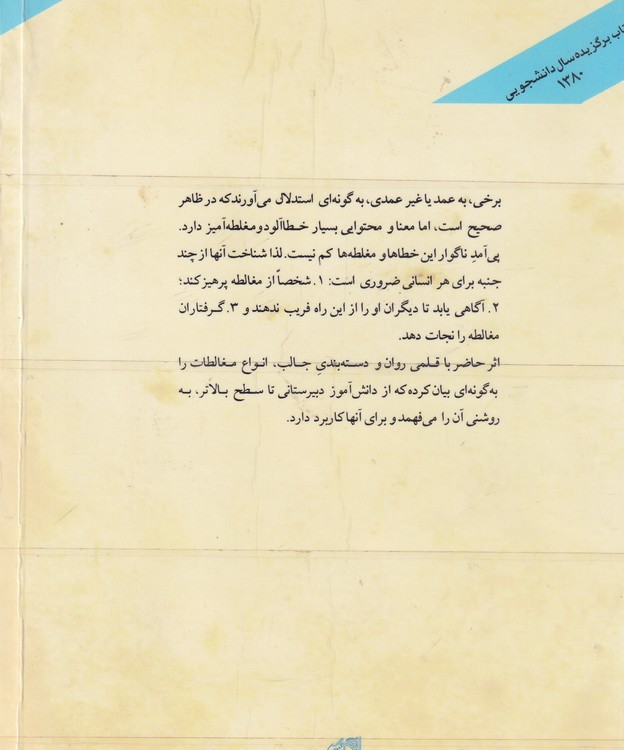 برگزیده سال دانشجویی
۱۳۸۰
برخی، به عمد یا غیر عمدی، به گونه‌ای استدلال می‌آورند که در ظاهر
صحیح است، اما معنا و محتوایی بسیار خطاآلود و مغلطه‌آمیز دارد.
پی‌آمدِ ناگوار این خطاها و مغلطه‌ها کم نیست. لذا شناخت آنها از چند
جنبه برای هر انسانی ضروری است: ۱. شخصاً از مغالطه پرهیز کند؛
۲. آگاهی یابد تا دیگران او را از این راه فریب ندهند و ۳. گرفتاران
مغالطه را نجات دهد.
اثر حاضر با قلمی روان و دسته‌بندیِ جالب، انواع مغالطات را
به‌گونه‌ای بیان کرده که از دانش‌آموز دبیرستانی تا سطح بالاتر، به
روشنی آن را می‌فهمد و برای آنها کاربرد دارد.